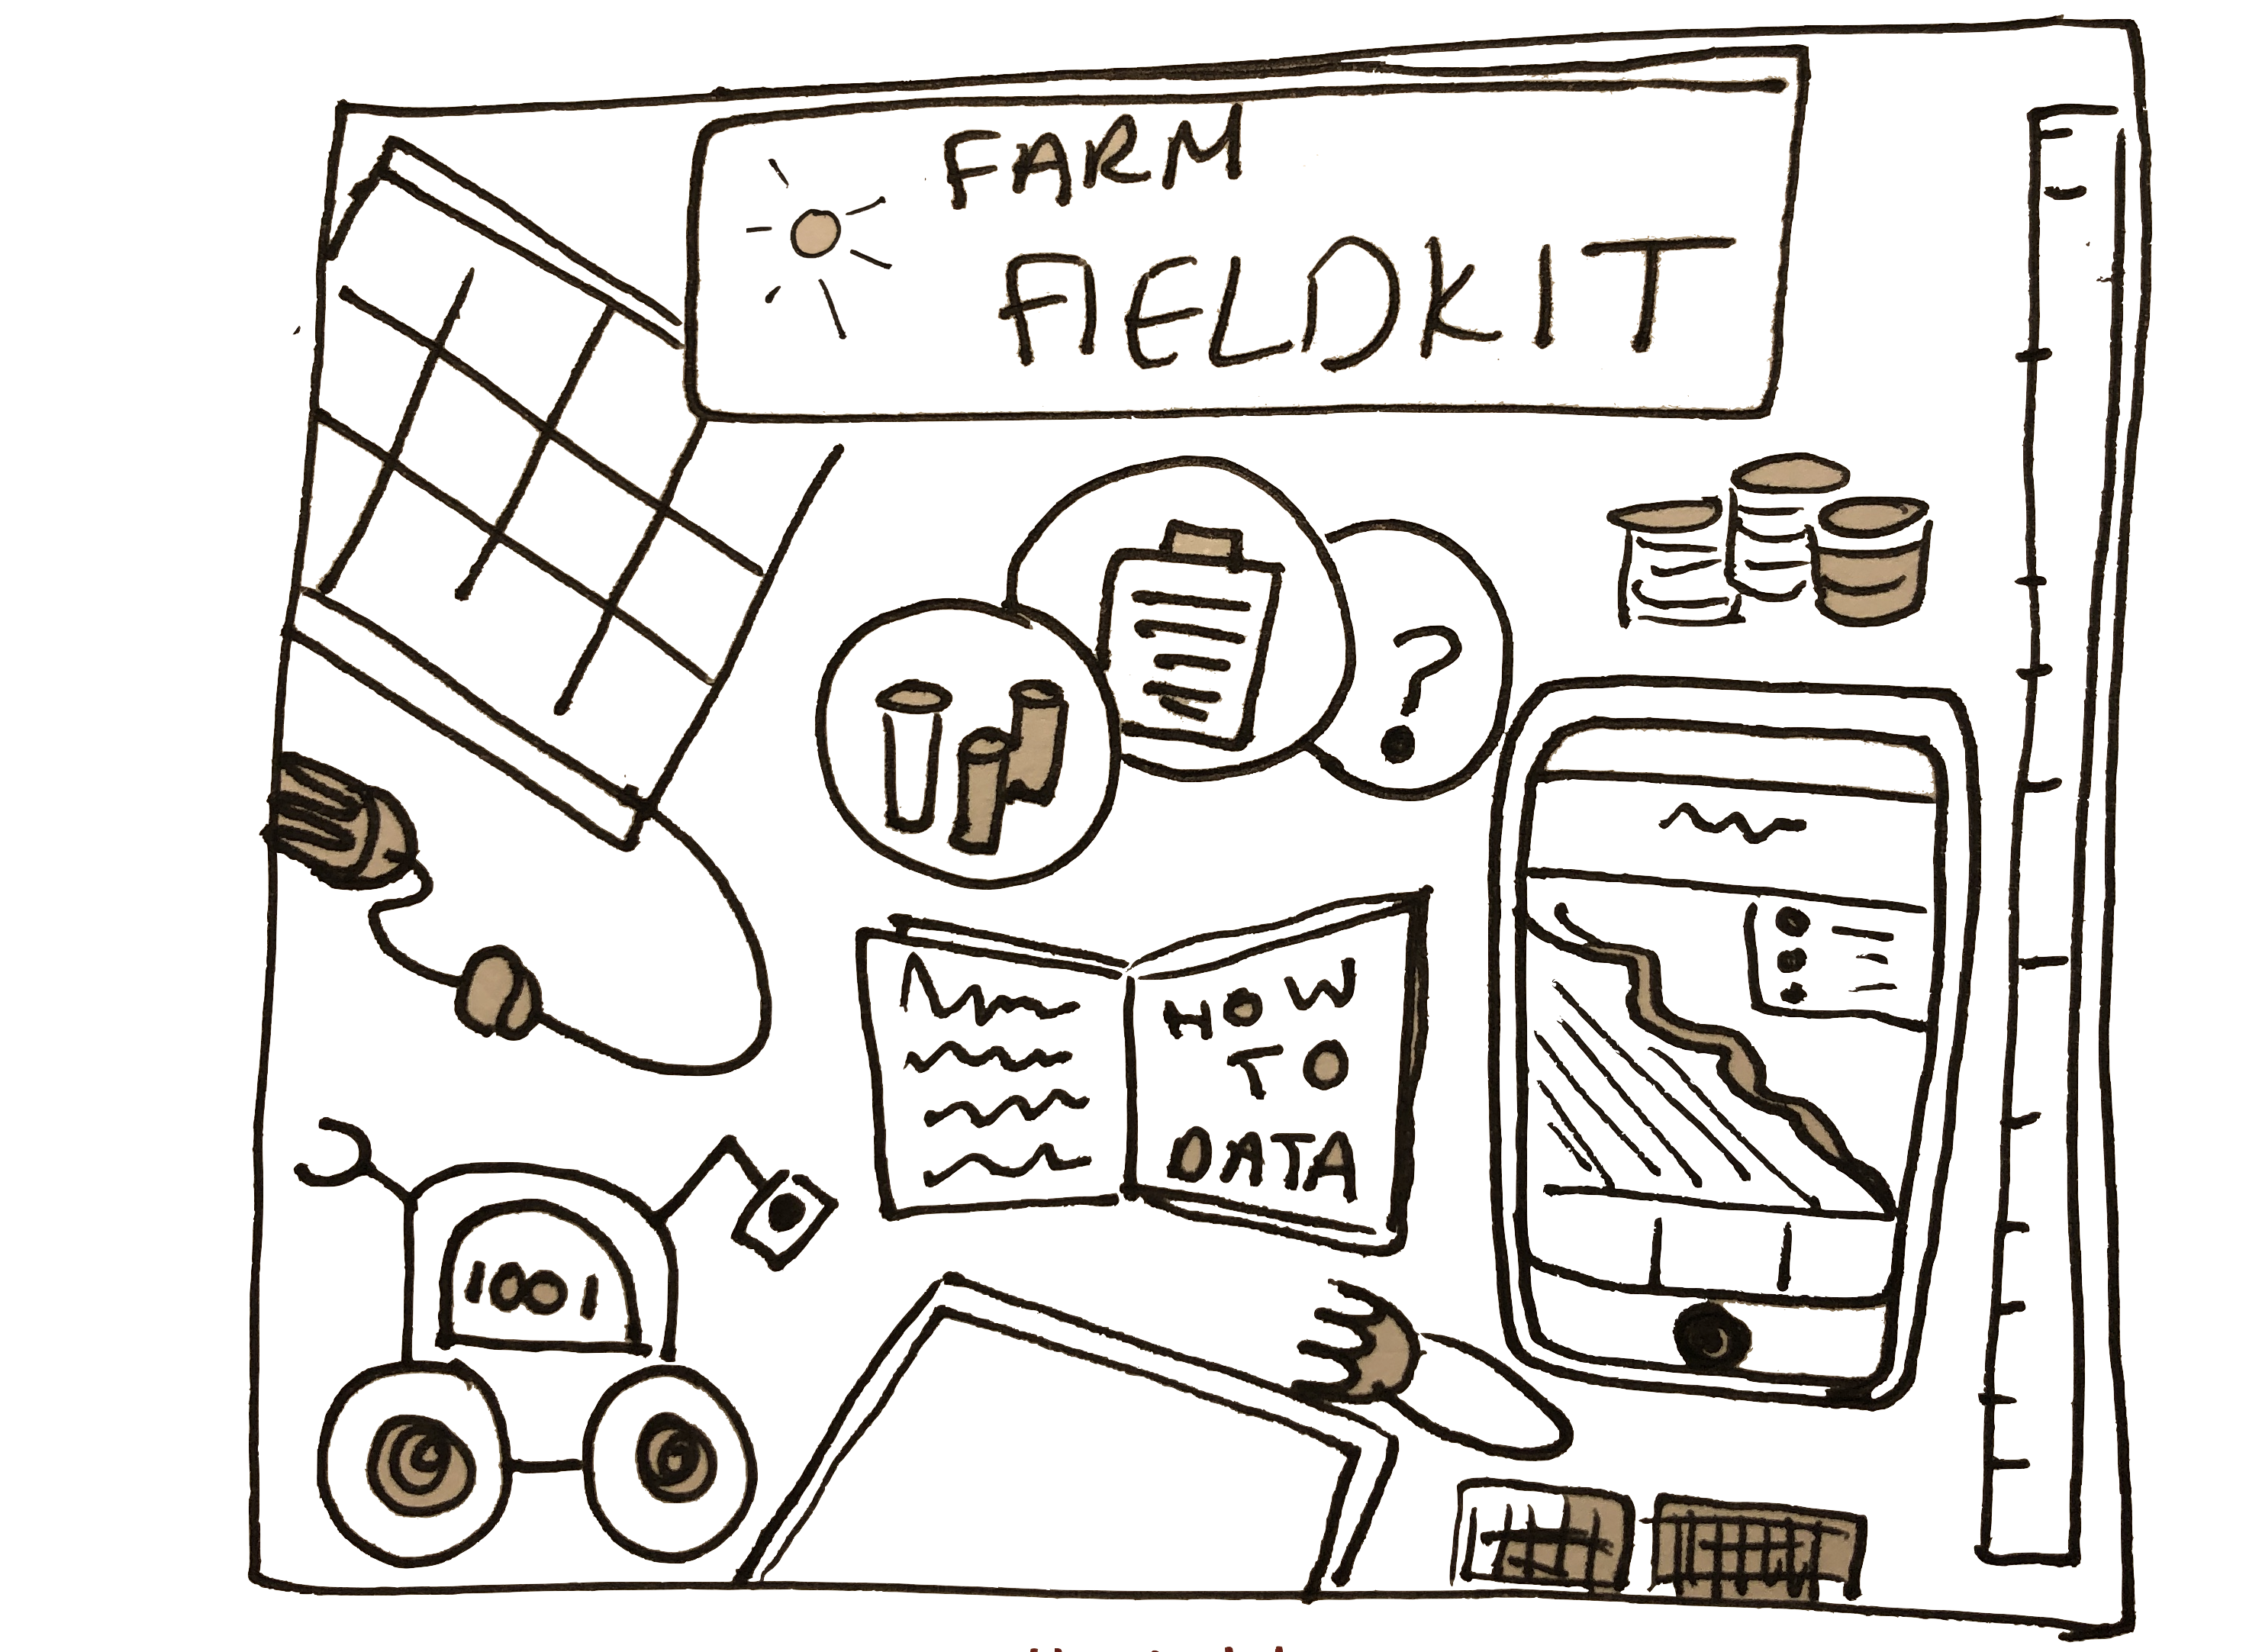 FARM
FIELDKIT
?
HOW
TO
DATA
1001